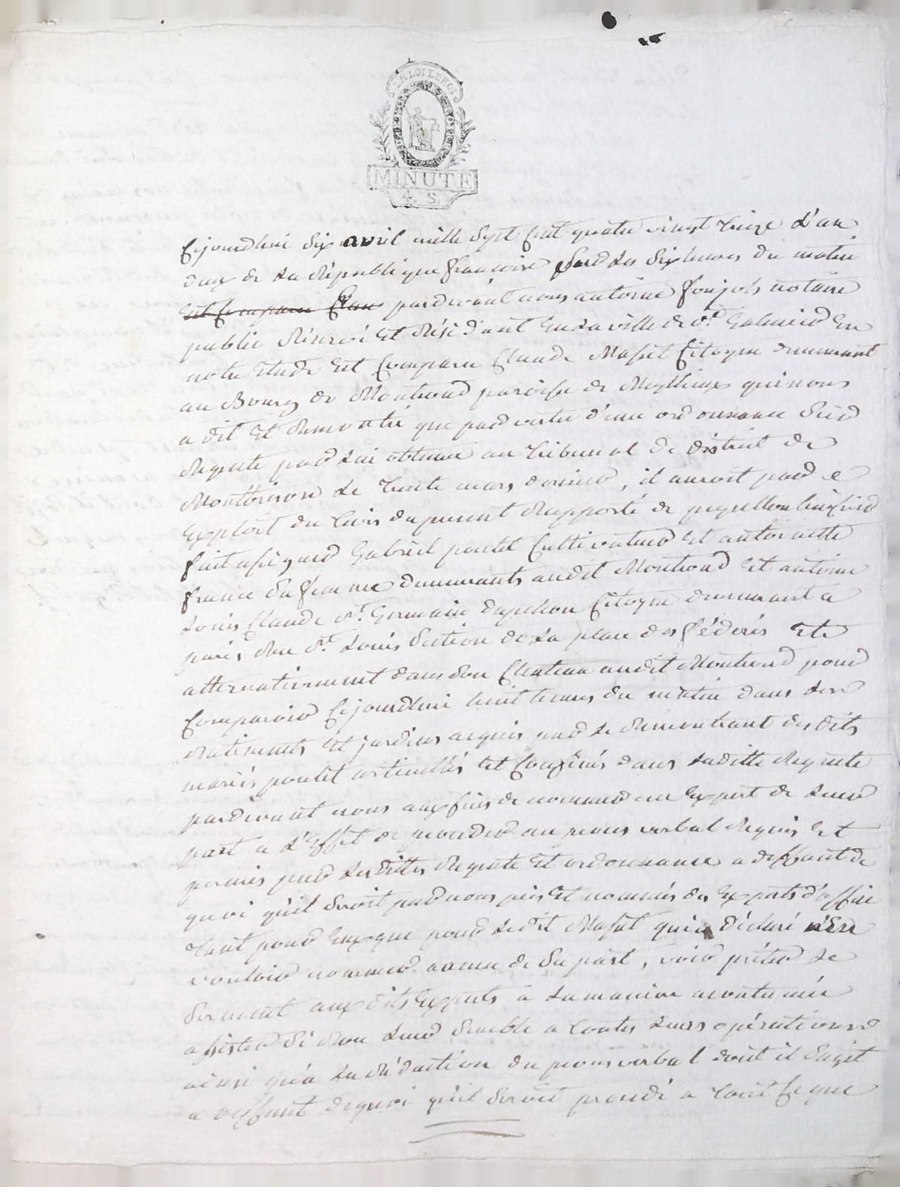 LA LOI LE ROI
MINUTE
4. S.
Cejourdhui dix avril mille sept cent quatre vingt treize l'an
deux de la République francoise sur les dix heures du matin
est comparu Clau pardevant nous antoine notaire
public Réservé et Résidant en la ville de st. Galmier en
notre Etude est Comparu Claude Massel Citoyen demeurant
au Bourg de Montrond paroisse de Meylieux qui nous
a dit et Remontré que par vertu d'une ordonnance sur
Requete par lui obtenue au tribunal de District de
Montbrison le trente mars dernier, il auroit par
Exploit du trois du present Rapporté de
fait assigner Gabriel poutet Cultivateur et antoinette
france sa femme demeurants audit Montrond et antoine
Louis Claude st. Germain dapchon Citoyen demeurant a
paris Rue st. Louis section de la place des fédérés et
alternativement dans son Chateau audit Montrond pour
Comparoir Cejourdhui huit heures du matin dans les
Batiments et jardins acquis par le Remontrant des dits
mariés poutet articullés et Confinés dans laditte Requete
pardevant nous aux fins de nommer un Expert de leur
part a l'Effet de proceder au proces verbal Requis et
permis par lesdittes Requete et ordonnance a deffaut de
quoi qu'il seroit par nous pris et nommés des Experts d'office
tant pour Eux que pour ledit Massel qui a déclaré n'En
vouloir nommer aucun de sa part, voir preter le
serment aux dits Experts a la maniere accoutumée
assister si bon leur semble a toutes leurs opérations
ainsi qu'a la Rédaction du proces verbal dont il s'agit
a deffaut de quoi qu'il seroit procedé a tout ce que